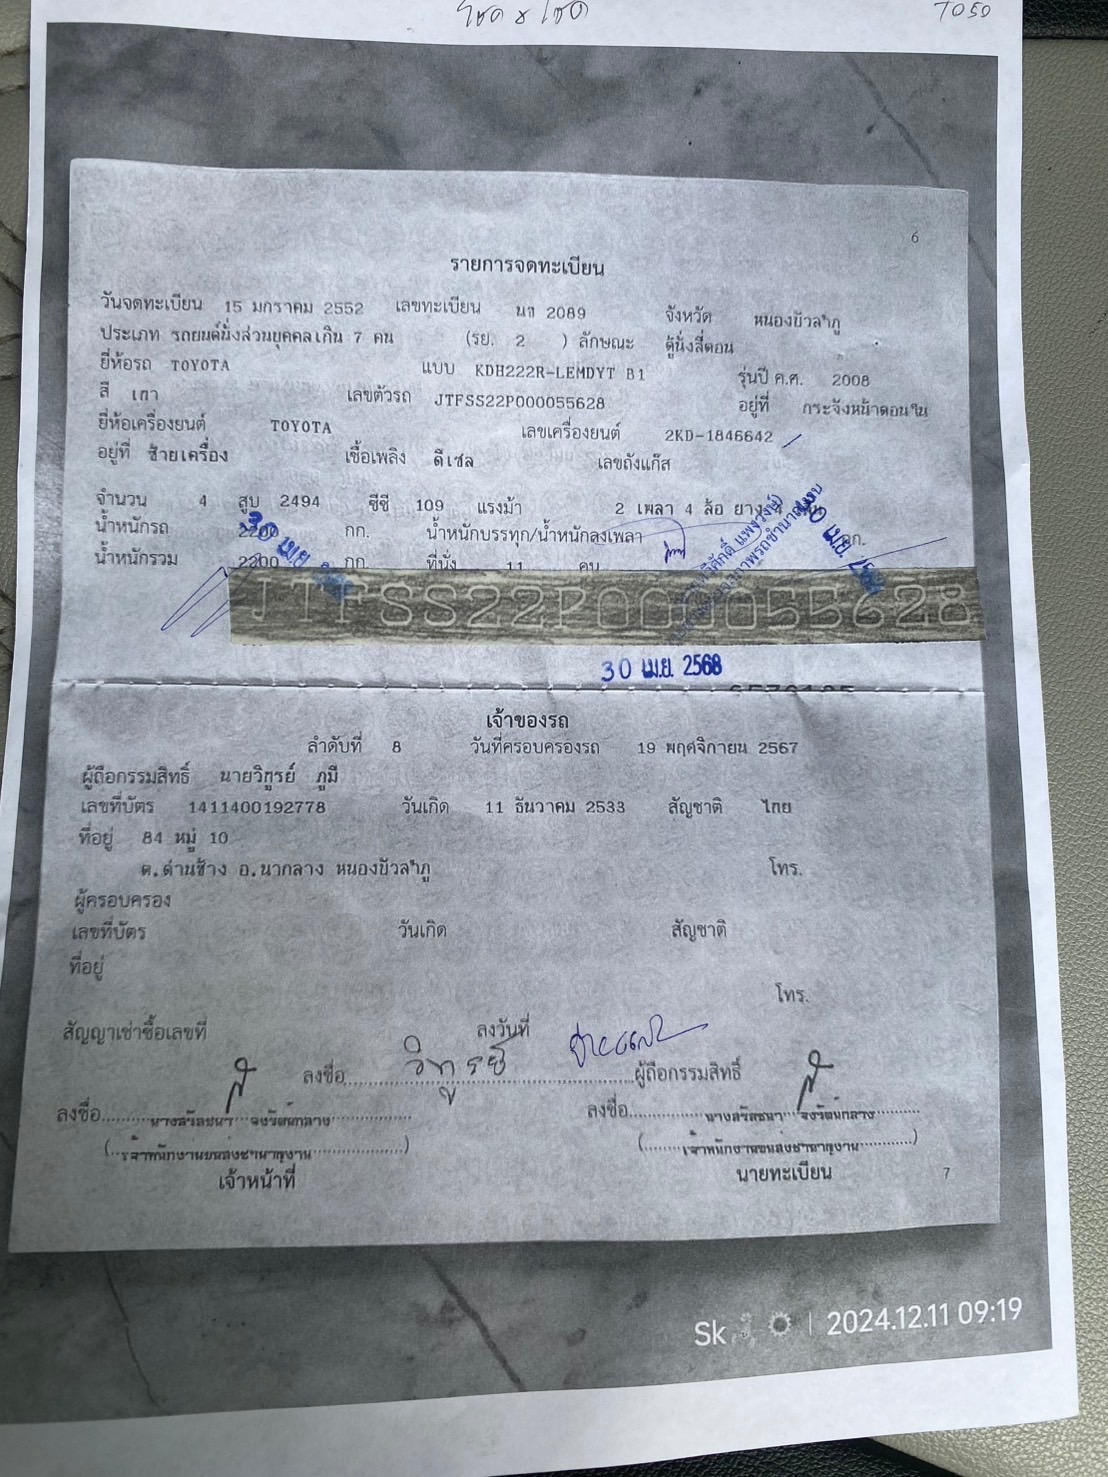 โชค x โชค T050
6
รายการจดทะเบียน
วันจดทะเบียน 15 มกราคม 2552 เลขทะเบียน นก 2089 จังหวัด หนองบัวลำภู
ประเภท รถยนต์นั่งส่วนบุคคลเกิน 7 คน (รย. 2 ) ลักษณะ ตู้นั่งสี่ตอน
ยี่ห้อรถ TOYOTA แบบ KDH222R-LEMDYT B1 รุ่นปี ค.ศ. 2008
สี เทา เลขตัวรถ JTFSS22P000055628 อยู่ที่ กระจังหน้าตอนใน
ยี่ห้อเครื่องยนต์ TOYOTA เลขเครื่องยนต์ 2KD-1846642
อยู่ที่ ซ้ายเครื่อง เชื้อเพลิง ดีเซล เลขถังแก๊ส
จำนวน 4 สูบ 2494 ซีซี 109 แรงม้า 2 เพลา 4 ล้อ ยาง 4
น้ำหนักรถ 2200 กก. น้ำหนักบรรทุก/น้ำหนักลงเพลา กก.
30 เม.ย. 30 เม.ย.
น้ำหนักรวม 2200 กก. ที่นั่ง 11 คน
JTFSS22P000055628
30 เม.ย. 2568
เจ้าของรถ
ลำดับที่ 8 วันที่ครอบครองรถ 19 พฤศจิกายน 2567
ผู้ถือกรรมสิทธิ์ นายวิทูรย์ ภูมี
เลขที่บัตร 1411400192778 วันเกิด 11 ธันวาคม 2533 สัญชาติ ไทย
ที่อยู่ 84 หมู่ 10
ต.ด่านช้าง อ.นากลาง หนองบัวลำภู โทร.
ผู้ครอบครอง
เลขที่บัตร วันเกิด สัญชาติ
ที่อยู่
โทร.
สัญญาเช่าซื้อเลขที่ ลงวันที่
ลงชื่อ วิทูรย์ ผู้ถือกรรมสิทธิ์
ลงชื่อ ลงชื่อ
(เจ้าพนักงานขนส่งชำนาญงาน) (เจ้าพนักงานขนส่งชำนาญงาน)
เจ้าหน้าที่ นายทะเบียน
7
Sk | 2024.12.11 09:19